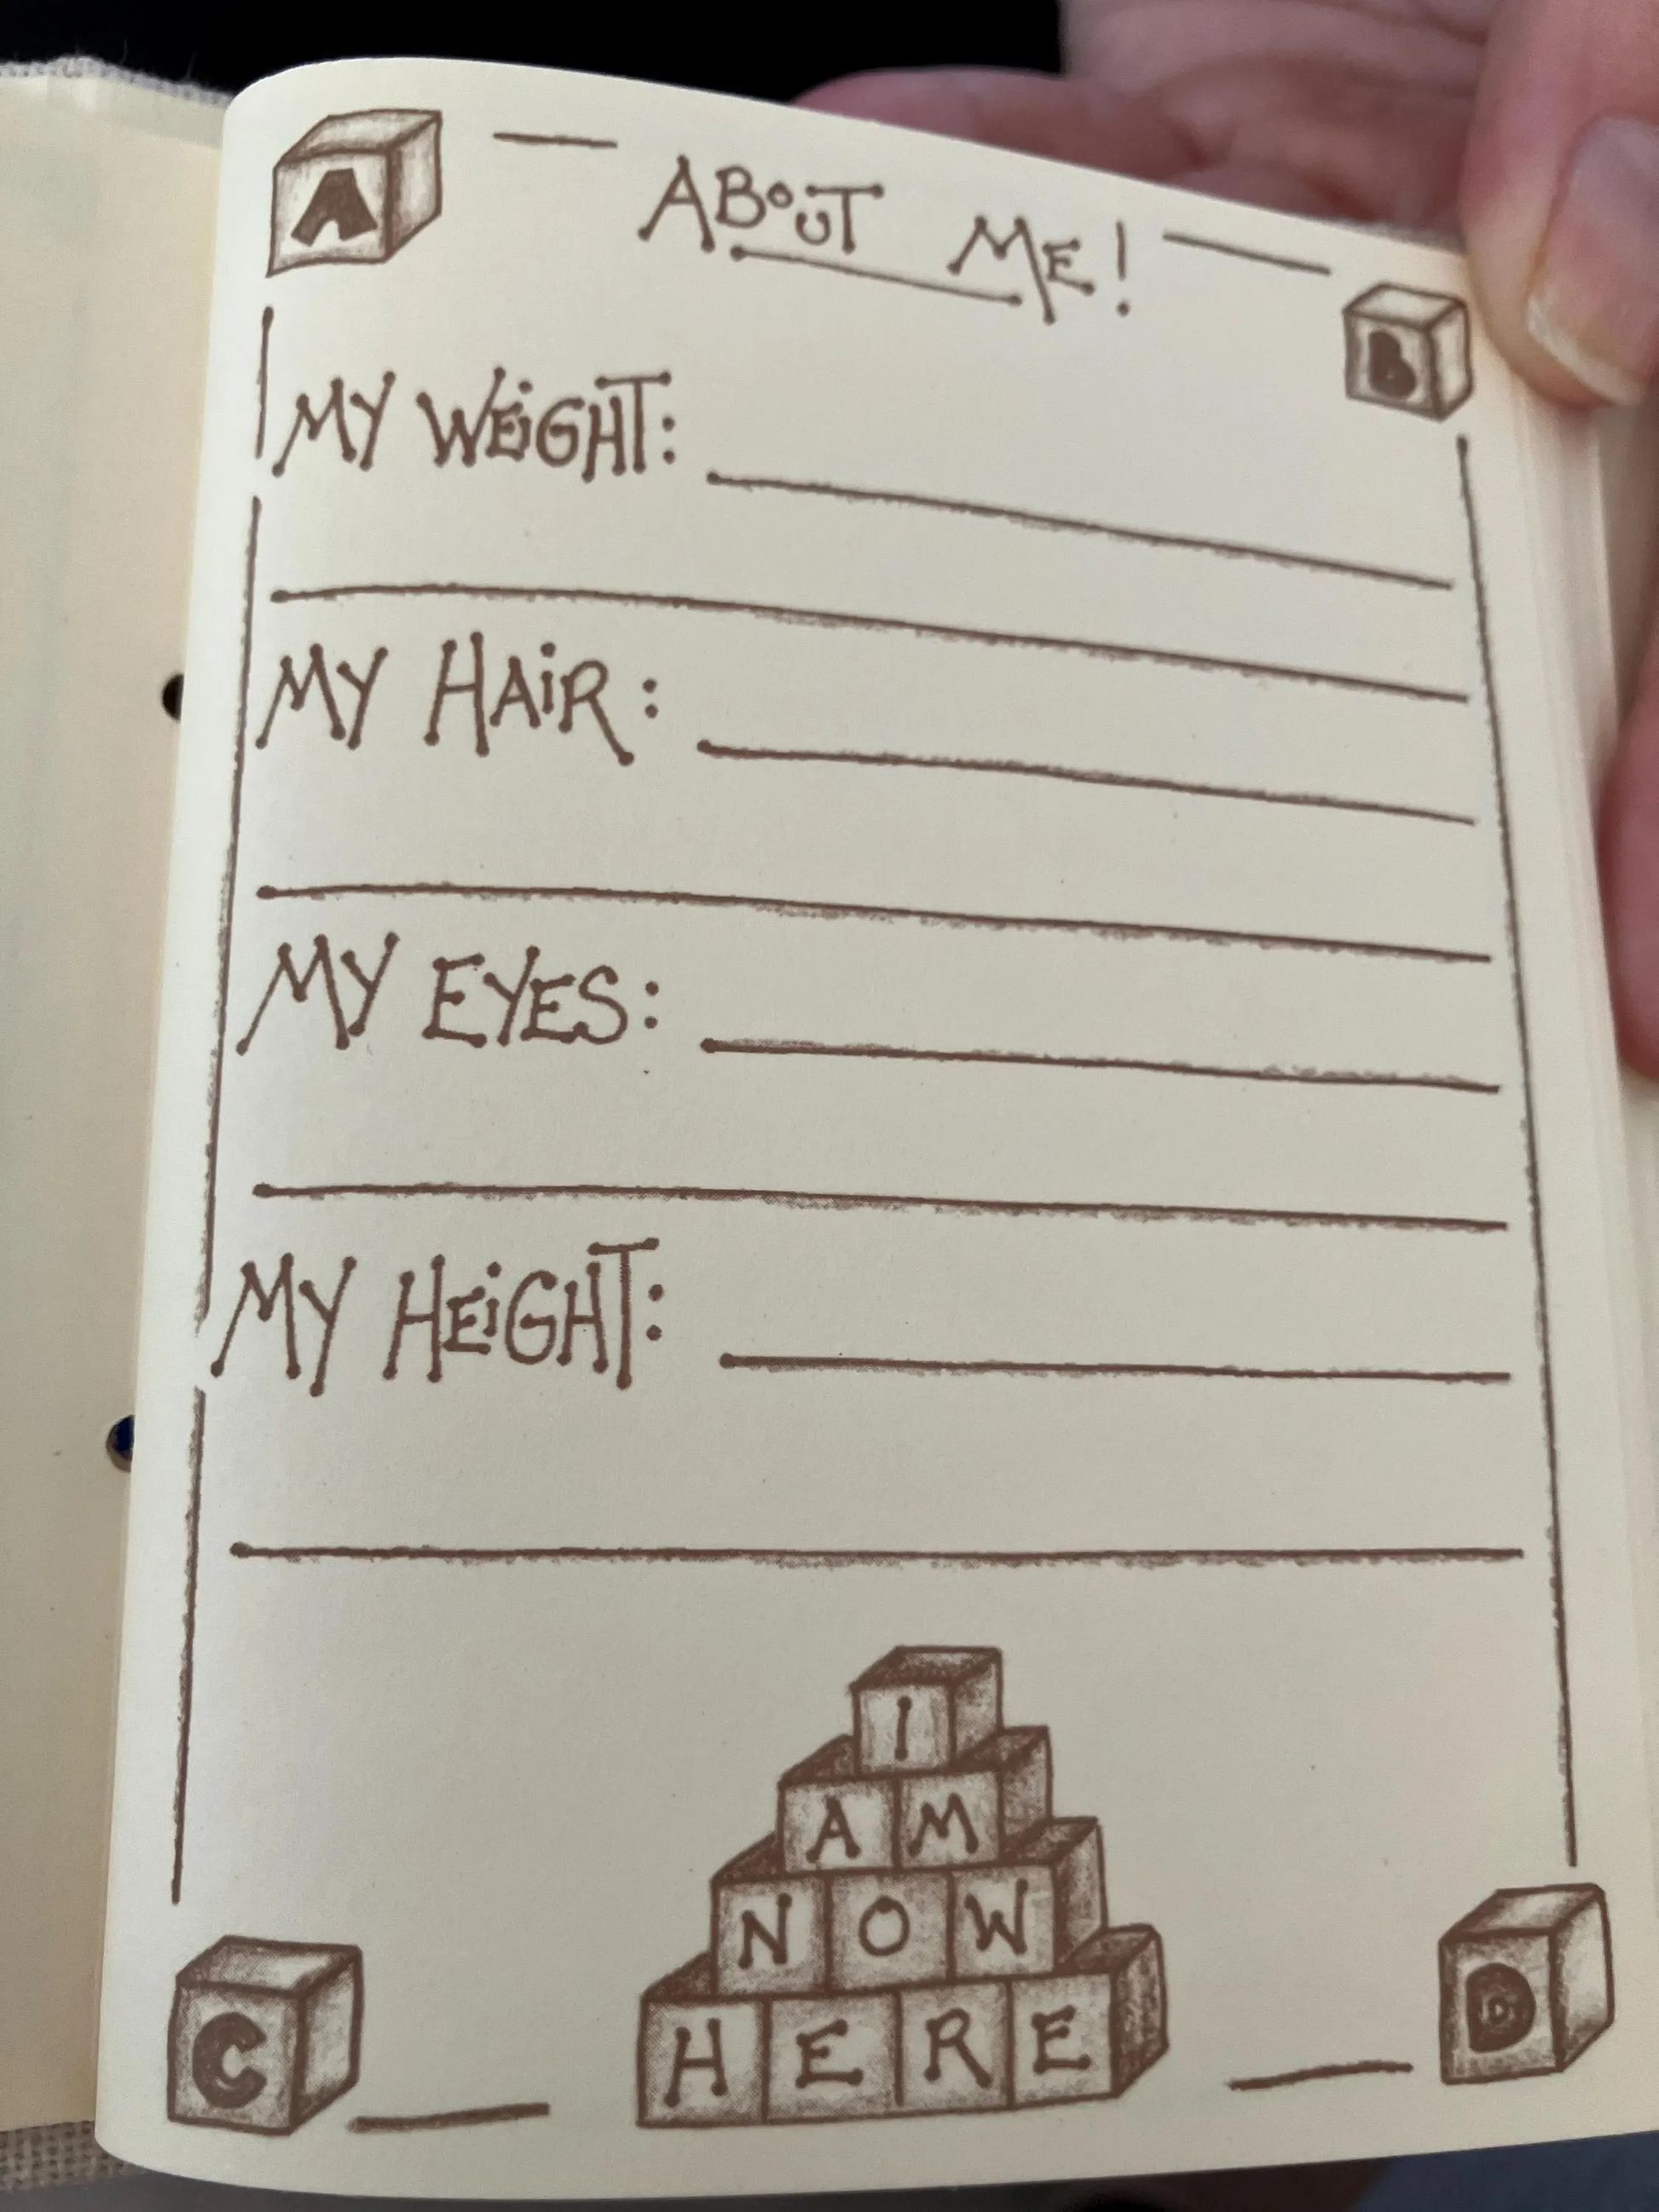 A
ABOUT ME!
B
MY WEIGHT:
MY HAIR:
MY EYES:
MY HEIGHT:
I
AM
NOW
HERE
C
D